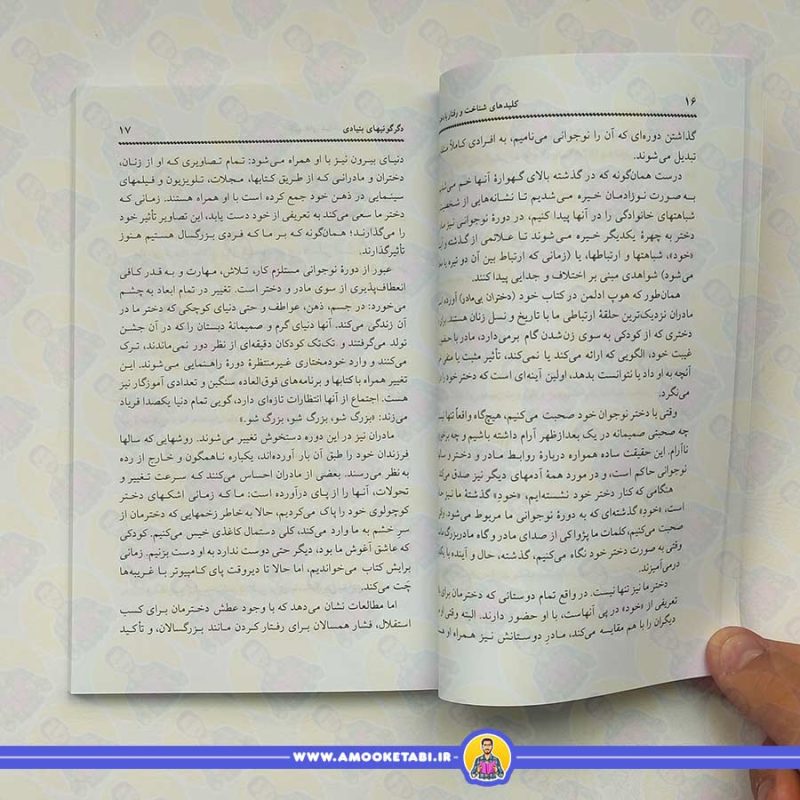 ۱۶
کلیدهای شناخت و رفتار با
گذاشتن دوره‌ای که آن را نوجوانی می‌نامیم، به افرادی کاملاً
تبدیل می‌شوند.
درست همان‌گونه که در گذشته بالای گهوارۀ آنها خم
به صورت نوزادمان خیره می‌شدیم تا نشانه‌هایی از
شباهتهای خانوادگی را در آنها پیدا کنیم، در دورۀ نوجوانی نیز
دختر به چهرۀ یکدیگر خیره می‌شوند تا علائمی از گذشته و
«خود»، شباهتها و ارتباطها، یا (زمانی که ارتباط بین آن دو تیره
می‌شود) شواهدی مبنی بر اختلاف و جدایی پیدا کنند.
همان‌طور که هوپ ادلمن در کتاب خود (دختران بی‌مادر) آورده
مادران نزدیک‌ترین حلقۀ ارتباطی ما با تاریخ و نسل زنان هستند. برای
دختری که از کودکی به سوی زن‌شدن گام برمی‌دارد، مادر با
غیبت خود، الگویی که ارائه می‌کند یا نمی‌کند، تأثیر مثبت یا منفی
آنچه به او داد یا نتوانست بدهد، اولین آینه‌ای است که دختر خود را
می‌نگرد.
وقتی با دختر نوجوان خود صحبت می‌کنیم، هیچ‌گاه واقعاً تنها
چه صحبتی صمیمانه در یک بعدازظهر آرام داشته باشیم و چه
ناآرام. این حقیقت ساده همواره دربارۀ روابط مادر و دختر و
نوجوانی حاکم است، و در مورد همۀ آدمهای دیگر نیز صدق
هنگامی که کنار دختر خود نشسته‌ایم، «خودِ» گذشتۀ ما نیز
است، «خودِ» گذشته‌ای که به دورۀ نوجوانی ما مربوط می‌شود.
صحبت می‌کنیم، کلمات ما پژواکی از صدای مادر و گاه مادربزرگ
وقتی به صورت دختر خود نگاه می‌کنیم، گذشته، حال و آینده با
درمی‌آمیزند.
دختر ما نیز تنها نیست. در واقع تمام دوستانی که دخترمان برای
تعریفی از «خود» در پی آنهاست، با او حضور دارند. البته وقتی او
دیگران را با هم مقایسه می‌کند، مادر دوستانش نیز همراه او
دگرگونیهای بنیادی
۱۷
دنیای بیرون نیز با او همراه می‌شود: تمام تصاویری که او از زنان،
دختران و مادرانی که از طریق کتابها، مجلات، تلویزیون و فیلمهای
سینمایی در ذهن خود جمع کرده است با او همراه هستند. زمانی که
دختر ما سعی می‌کند به تعریفی از خود دست یابد، این تصاویر تأثیر خود
را می‌گذارند؛ همان‌گونه که بر ما که فردی بزرگسال هستیم هنوز
تأثیرگذارند.
عبور از دورۀ نوجوانی مستلزم کار، تلاش، مهارت و به قدر کافی
انعطاف‌پذیری از سوی مادر و دختر است. تغییر در تمام ابعاد به چشم
می‌خورد: در جسم، ذهن، عواطف و حتی دنیای کوچکی که دختر ما در
آن زندگی می‌کند. آنها دنیای گرم و صمیمانۀ دبستان را که در آن جشن
تولد می‌گرفتند و تک‌تک کودکان دقیقه‌ای از نظر دور نمی‌ماندند، ترک
می‌کنند و وارد خودمختاری غیرمنتظرۀ دورۀ راهنمایی می‌شوند. این
تغییر همراه با کتابها و برنامه‌های فوق‌العاده سنگین و تعدادی آموزگار نیز
هست. اجتماع از آنها انتظارات تازه‌ای دارد، گویی تمام دنیا یکصدا فریاد
می‌زند: «بزرگ شو، بزرگ شو، بزرگ شو.»
مادران نیز در این دوره دستخوش تغییر می‌شوند. روشهایی که سالها
فرزندان خود را طبق آن بار آورده‌اند، یکباره ناهمگون و خارج از رده
به نظر می‌رسند. بعضی از مادران احساس می‌کنند که سرعت تغییر و
تحولات، آنها را از پای درآورده است: ما که زمانی اشکهای دختر
کوچولوی خود را پاک می‌کردیم، حالا به خاطر زخمهایی که دخترمان از
سر خشم به ما وارد می‌کند، کلی دستمال کاغذی خیس می‌کنیم. کودکی
که عاشق آغوش ما بود، دیگر حتی دوست ندارد به او دست بزنیم. زمانی
برایش کتاب می‌خواندیم، اما حالا تا دیروقت پای کامپیوتر با غریبه‌ها
چَت می‌کند.
اما مطالعات نشان می‌دهد که با وجود عطش دخترمان برای کسب
استقلال، فشار همسالان برای رفتار کردن مانند بزرگسالان، و تأکید
WWW.AMOOKETABI.IR